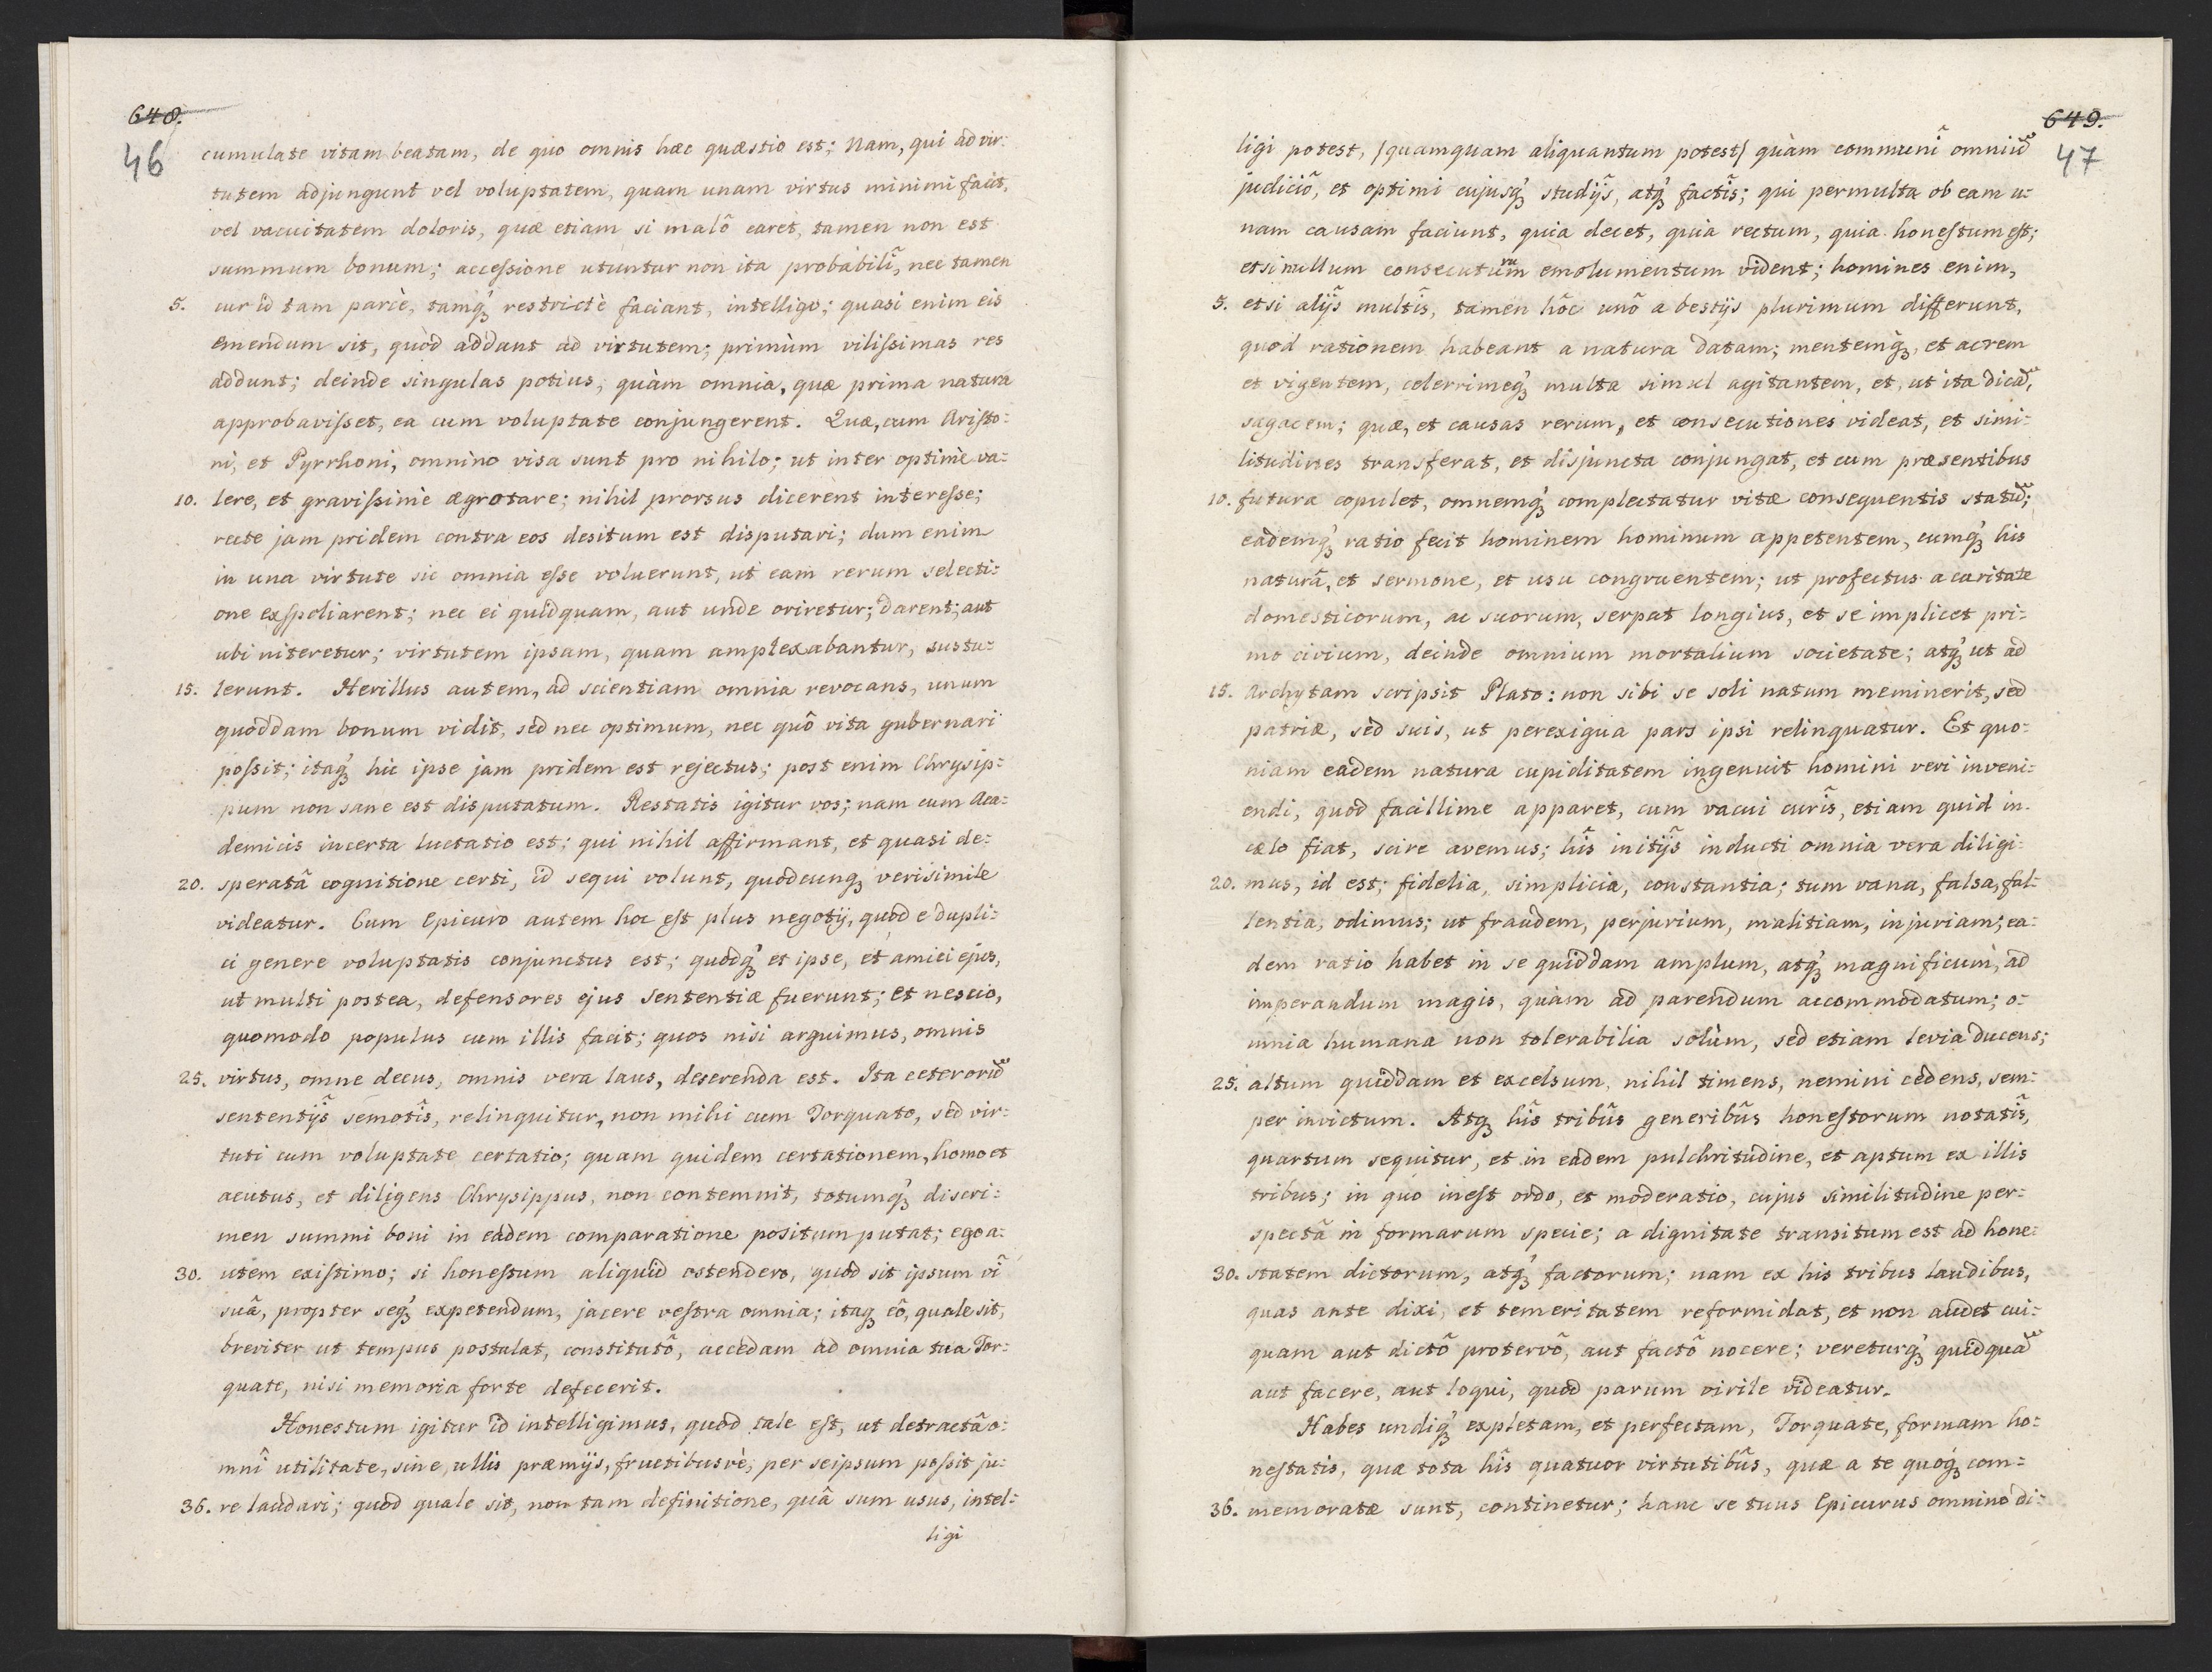 648.
46
cumulate vitam beatam, de quo omnis hæc quæstio est; Nam, qui ad vir:
tutem adjungunt vel voluptatem, quam unam virtus minimi facit,
vel vacuitatem doloris, quæ etiam si malô caret, tamen non est
summum bonum; accessione utuntur non ita probabilî, nec tamen
5. cur id tam parcè, tamq́ʒ restrictè faciant, intelligo; quasi enim eis
emendum sit, quòd addant ad virtutem; primùm vilissimas res
addunt; deinde singulas potius, quàm omnia, quæ prima natura
approbavisset, ea cum voluptate conjungerent. Quæ, cum Aristo:
ni, et Pyrrhoni, omnino visa sunt pro nihilo; ut inter optimè va:
10. lere, et gravissimè ægrotare; nihil prorsus dicerent interesse;
recte jam pridem contra eos desitum est disputari; dum enim
in una virtute sic omnia esse voluerunt, ut eam rerum selecti:
one exspoliarent; nec ei quidquam, aut unde oriretur; darent; aut
ubi niteretur; virtutem ipsam, quam amplexabantur, sustu:
15. lerunt. Herillus autem, ad scientiam omnia revocans, unum
quoddam bonum vidit, sed nec optimum, nec quô vita gubernari
possit; itaq́ʒ hic ipse jam pridem est rejectus; post enim Chrysip:
pum non sane est disputatum. Restatis igitur vos; nam cum Aca:
demicis incerta luctatio est; qui nihil affirmant, et quasi de:
20. speratâ cognitione certi, id sequi volunt, quodcunqʒ verisimile
videatur. Cum Epicuro autem hoc est plus negotij, quod e dupli:
ci genere voluptatis conjunctus est; quodq́ʒ et ipse, et amici ejus,
ut multi postea, defensores ejus sententiæ fuerunt; et nescio,
quomodo populus cum illis facit; quos nisi arguimus, omnis
25. virtus, omne decus, omnis vera laus, deserenda est. Ita ceterorũ
sententijs̃ semotis̃, relinquitur, non mihi cum Torquato, sed vir:
tuti cum voluptate certatio; quam quidem certationem, homo et
acutus, et diligens Chrysippus, non contemnit, totumq́ʒ discri:
men summi boni in eadem comparatione positum putat; ego a:
30. utem existimo; si honestum aliquid ostendero, quod sit ipsum vî
suâ, propter seq́ʒ expetendum, jacere vestra omnia; itaqʒ eô, quale sit,
breviter ut tempus postulat, constitutô, accedam ad omnia tua Tor:
quate, nisi memoria forte defecerit.
Honestum igitur id intelligimus, quod tale est, ut detractâ o:
mnî utilitate, sine, ullis præmijs, fructibusvè, per seipsum possit ju:
36. re laudari; quod quale sit, non tam definitione, quâ sum usus, intel:
ligi
649.
47
ligi potest, /quamquam aliquantum potest/ quàm communî omniũ
judiciô, et optimi cujusq́ʒ studijs̃, atq́ʒ factis̃; qui permulta ob eam u:
nam causam faciunt, quia decet, quia rectum, quia honestum est;
etsi nullum consecuturum emolumentum vident; homines enim,
5. etsi alijs̃ multis̃, tamen hôc unô a bestijs plurimum differunt,
quod rationem habeant a natura datam; mentemq́ʒ, et acrem
et vigentem, celerrimeq́ʒ multa simul agitantem, et, ut ita dicã,
sagacem; quæ, et causas rerum, et consecutiones videat, et simi:
litudines transferat, et disjuncta conjungat, et cum præsentibus
10. futura copulet, omnemq́ʒ complectatur vitæ consequentis statũ;
eademq́ʒ ratio fecit hominem hominum appetentem, cumq́ʒ his
naturâ, et sermone, et usu congruentem; ut profectus a caritate
domesticorum, ac suorum, serpat longius, et se implicet pri:
mo civium, deinde omnium mortalium societate; atq́ʒ ut ad
15. Archytam scripsit Plato: non sibi se soli natum meminerit, sed
patriæ, sed suis, ut perexigua pars ipsi relinquatur. Et quo:
niam eadem natura cupiditatem ingenuit homini veri inveni:
endi, quod facillime apparet, cum vacui curis̃, etiam quid in
cælo fiat, scire avemus; his̃ initijs̃ inducti omnia vera diligi:
20. mus, id est; fidelia, simplicia, constantia; tum vana, falsa, fal:
lentia, odimus; ut fraudem, perjurium, malitiam, injuriam; ea:
dem ratio habet in se quiddam amplum, atq́ʒ magnificum, ad
imperandum magis, quàm ad parendum accommodatum; o:
mnia humana non tolerabilia solùm, sed etiam levia ducens;
25. altum quiddam et excelsum, nihil timens, nemini cedens, sem:
per invictum. Atqʒ his̃ tribus̃ generibus̃ honestorum notatis̃,
quartum sequitur, et in eadem pulchritudine, et aptum ex illis
tribus; in quo inest ordo, et moderatio, cujus similitudine per:
spectâ in formarum specie; a dignitate transitum est ad hone:
30. statem dictorum, atq́ʒ factorum; nam ex his tribus laudibus,
quas ante dixi, et temeritatem reformidat, et non audet cui:
quam aut dictô protervô, aut factô nocere; vereturq́ʒ quidquã
aut facere, aut loqui, quod parum virile videatur.
Habes undiq́ʒ expletam, et perfectam, Torquate, formam ho:
nestatis, quæ tota his̃ quatuor virtutibus̃, quæ a te quoq́ʒ com:
36. memoratæ sunt, continetur; hanc se tuus Epicurus omnino di: